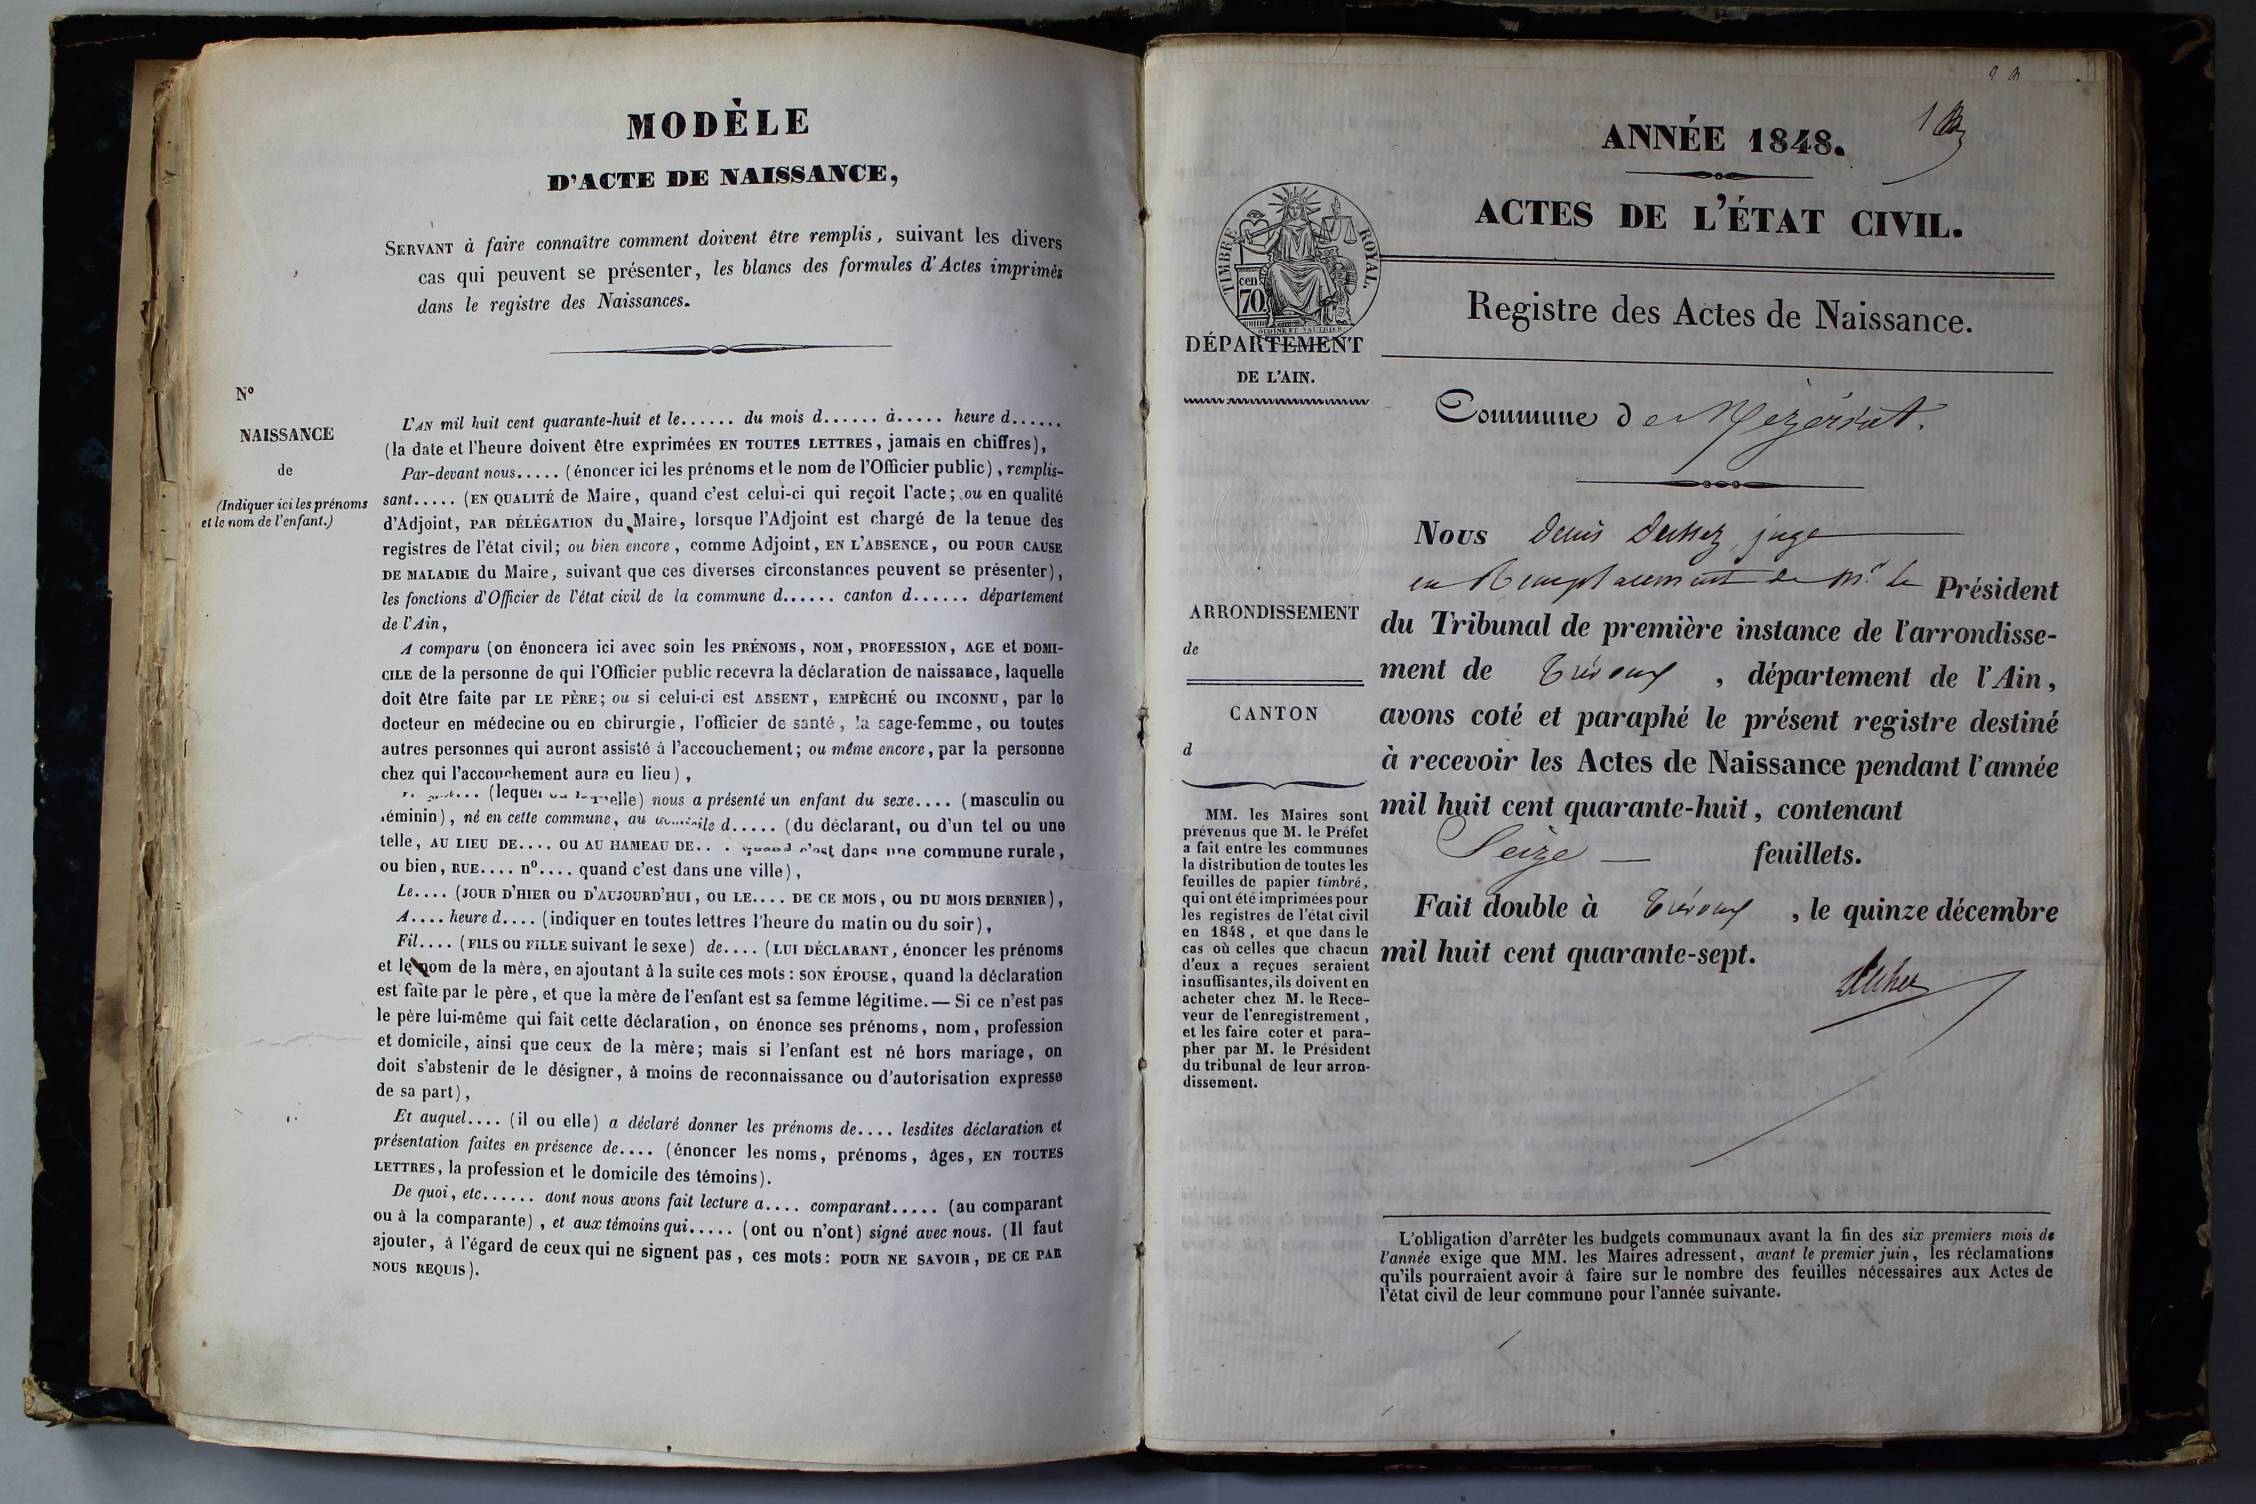 MODÈLE
D'ACTE DE NAISSANCE,
SERVANT à faire connaître comment doivent être remplis, suivant les divers
cas qui peuvent se présenter, les blancs des formules d'Actes imprimés
dans le registre des Naissances.
N°
NAISSANCE
de
(Indiquer ici les prénoms
et le nom de l'enfant.)
L'AN mil huit cent quarante-huit et le...... du mois d...... à..... heure d......
(la date et l'heure doivent être exprimées EN TOUTES LETTRES, jamais en chiffres),
Par-devant nous..... (énoncer ici les prénoms et le nom de l'Officier public), remplis-
sant..... (EN QUALITÉ de Maire, quand c'est celui-ci qui reçoit l'acte; ou en qualité
d'Adjoint, PAR DÉLÉGATION du Maire, lorsque l'Adjoint est chargé de la tenue des
registres de l'état civil; ou bien encore, comme Adjoint, EN L'ABSENCE, OU POUR CAUSE
DE MALADIE du Maire, suivant que ces diverses circonstances peuvent se présenter),
les fonctions d'Officier de l'état civil de la commune d...... canton d...... département
de l'Ain,
A comparu (on énoncera ici avec soin les PRÉNOMS, NOM, PROFESSION, AGE et DOMI-
CILE de la personne de qui l'Officier public recevra la déclaration de naissance, laquelle
doit être faite par LE PÈRE; ou si celui-ci est ABSENT, EMPÊCHÉ OU INCONNU, par le
docteur en médecine ou en chirurgie, l'officier de santé, la sage-femme, ou toutes
autres personnes qui auront assisté à l'accouchement; ou même encore, par la personne
chez qui l'accouchement aura eu lieu),
... (lequel ou laquelle) nous a présenté un enfant du sexe.... (masculin ou
féminin), né en cette commune, au domicile d..... (du déclarant, ou d'un tel ou une
telle, AU LIEU DE.... OU AU HAMEAU DE... quand c'est dans une commune rurale,
ou bien, RUE.... n°.... quand c'est dans une ville),
Le.... (JOUR D'HIER OU D'AUJOURD'HUI, OU LE.... DE CE MOIS, OU DU MOIS DERNIER),
A.... heure d.... (indiquer en toutes lettres l'heure du matin ou du soir),
Fil.... (FILS OU FILLE suivant le sexe) de.... (LUI DÉCLARANT, énoncer les prénoms
et le nom de la mère, en ajoutant à la suite ces mots: SON ÉPOUSE, quand la déclaration
est faite par le père, et que la mère de l'enfant est sa femme légitime. — Si ce n'est pas
le père lui-même qui fait cette déclaration, on énonce ses prénoms, nom, profession
et domicile, ainsi que ceux de la mère; mais si l'enfant est né hors mariage, on
doit s'abstenir de le désigner, à moins de reconnaissance ou d'autorisation expresse
de sa part),
Et auquel.... (il ou elle) a déclaré donner les prénoms de.... lesdites déclaration et
présentation faites en présence de.... (énoncer les noms, prénoms, âges, EN TOUTES
LETTRES, la profession et le domicile des témoins).
De quoi, etc...... dont nous avons fait lecture a.... comparant..... (au comparant
ou à la comparante), et aux témoins qui..... (ont ou n'ont) signé avec nous. (Il faut
ajouter, à l'égard de ceux qui ne signent pas, ces mots: POUR NE SAVOIR, DE CE PAR
NOUS REQUIS).
1
ANNÉE 1848.
ACTES DE L'ÉTAT CIVIL.
TIMBRE ROYAL.
cen 70
Registre des Actes de Naissance.
DÉPARTEMENT
DE L'AIN.
Commune de Mézériat.
Nous Denis Duhez, juge
en Remplacement de Mr. le Président
du Tribunal de première instance de l'arrondisse-
ment de Trévoux, département de l'Ain,
avons coté et paraphé le présent registre destiné
à recevoir les Actes de Naissance pendant l'année
mil huit cent quarante-huit, contenant
Seize — feuillets.
Fait double à Trévoux, le quinze décembre
mil huit cent quarante-sept.
ARRONDISSEMENT
de
CANTON
d
MM. les Maires sont
prévenus que M. le Préfet
a fait entre les communes
la distribution de toutes les
feuilles de papier timbré,
qui ont été imprimées pour
les registres de l'état civil
en 1848, et que dans le
cas où celles que chacun
d'eux a reçues seraient
insuffisantes, ils doivent en
acheter chez M. le Rece-
veur de l'enregistrement,
et les faire coter et para-
pher par M. le Président
du tribunal de leur arron-
dissement.
L'obligation d'arrêter les budgets communaux avant la fin des six premiers mois de
l'année exige que MM. les Maires adressent, avant le premier juin, les réclamations
qu'ils pourraient avoir à faire sur le nombre des feuilles nécessaires aux Actes de
l'état civil de leur commune pour l'année suivante.